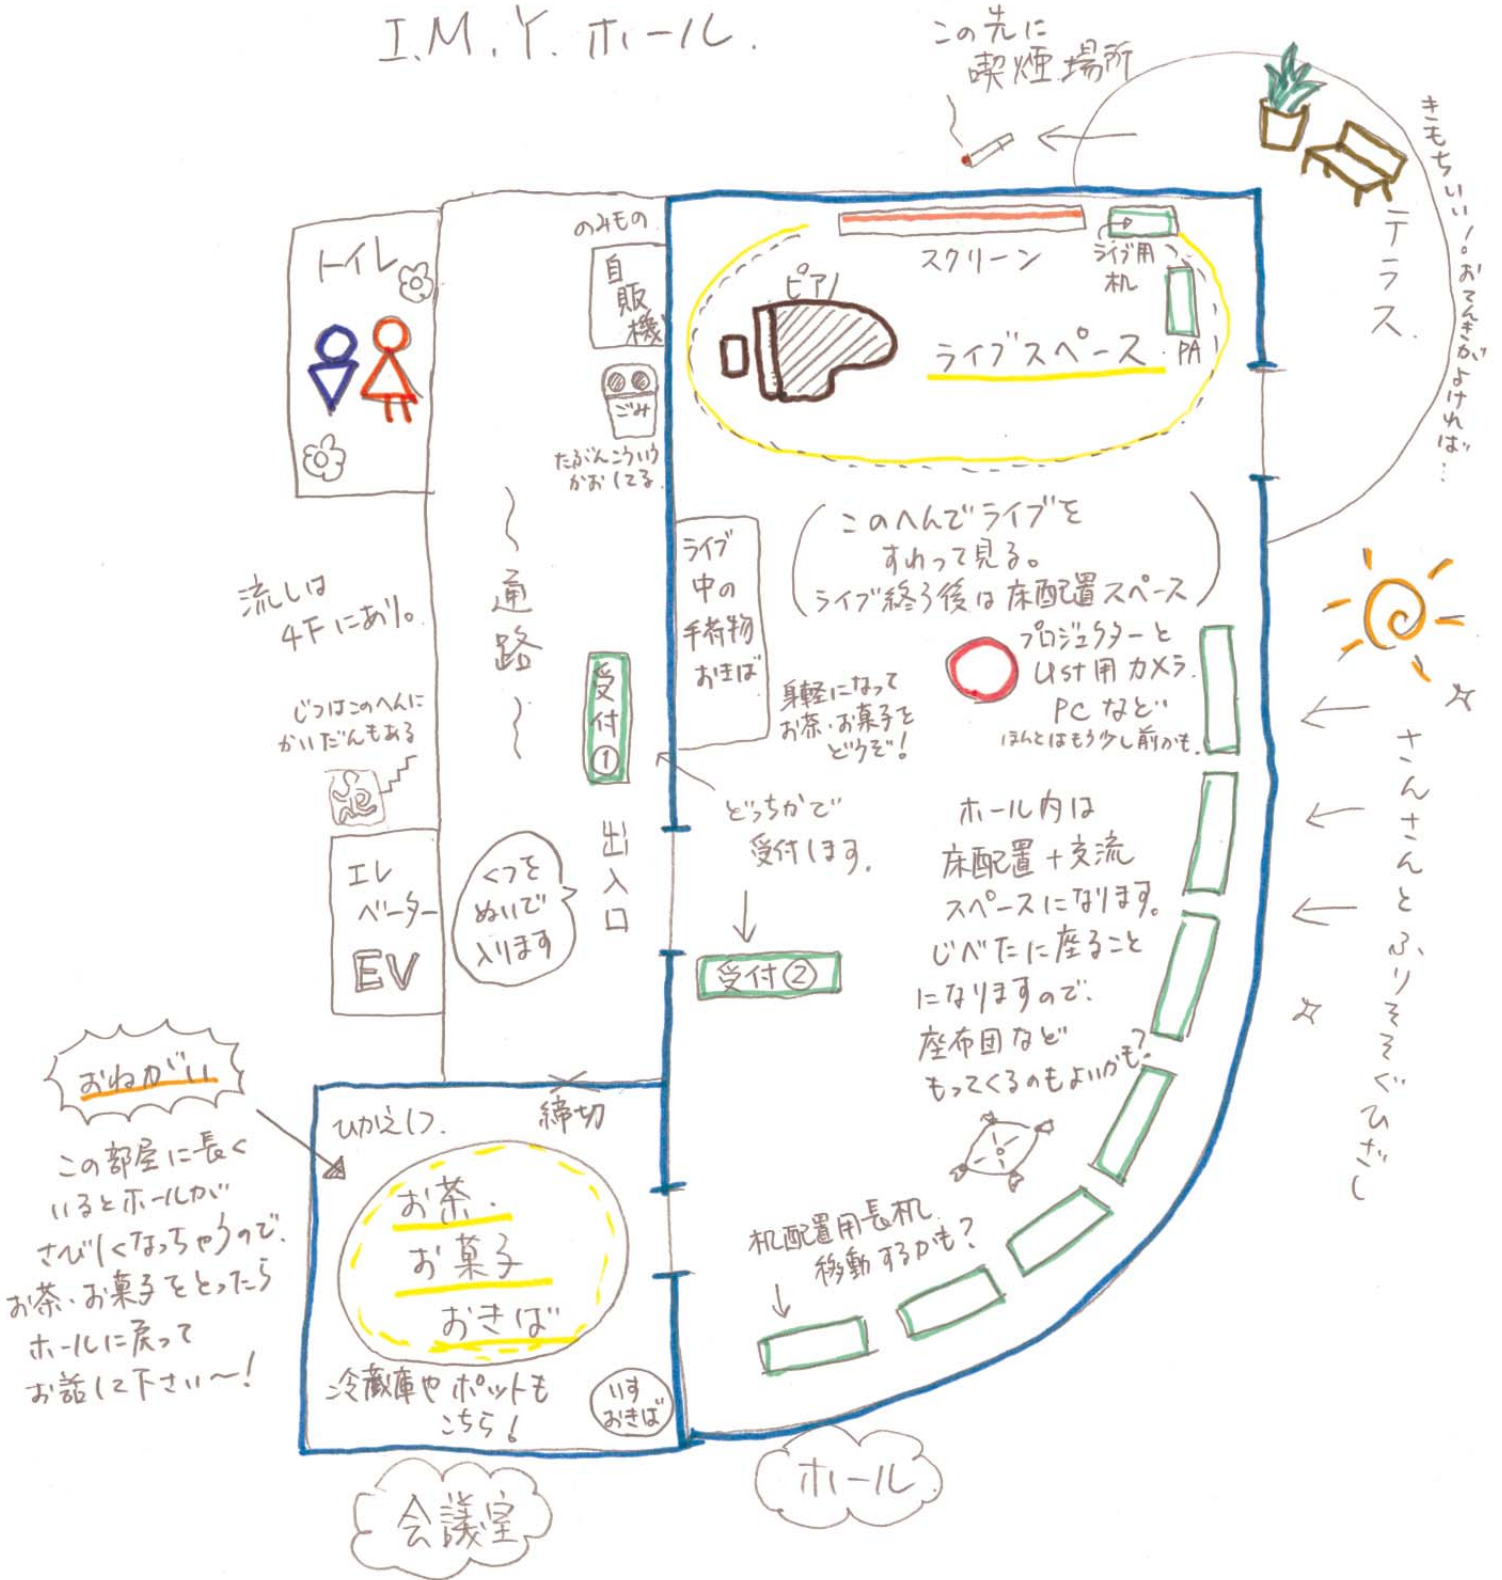 I.M.Y. ホール.
この先に
喫煙場所
きもちいい!。おてんきがよければ…
テラス.
トイレ
のみもの
自
販
機
ごみ
たぶんこういう
かおしてる.
スクリーン
ライブ用
机
ピアノ
ライブスペース
PA
このへんでライブを
すわって見る。
ライブ終了後は床配置スペース
ライブ
中の
手荷物
おきば
身軽になって
お茶・お菓子を
どうぞ!
プロジェクターと
Ust用カメラ.
PCなど
ほんとはもう少し前かも.
流しは
4Fにあり。
〜通路〜
じつはこのへんに
かいだんもある
受
付
①
出
入
口
くつを
ぬいで
入ります
エレ
ベーター
EV
どっちかで
受付します.
受付②
ホール内は
床配置+交流
スペースになります。
じべたに座ること
になりますので.
座布団など
もってくるのもよいかも?
さんさんとふりそそぐひざし
おねがい
この部屋に長く
いるとホールが
さびしくなっちゃうので.
お茶・お菓子をとったら
ホールに戻って
お話して下さい〜!
ひかえしつ.
締切
お茶・
お菓子
おきば
冷蔵庫やポットも
こちら!
いす
おきば
机配置用長机.
移動するかも?
会議室
ホール